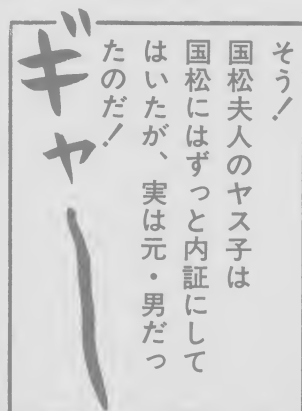 そう！
国松夫人のヤス子は
国松にはずっと内証にして
はいたが、実は元・男だっ
たのだ！
ギャー